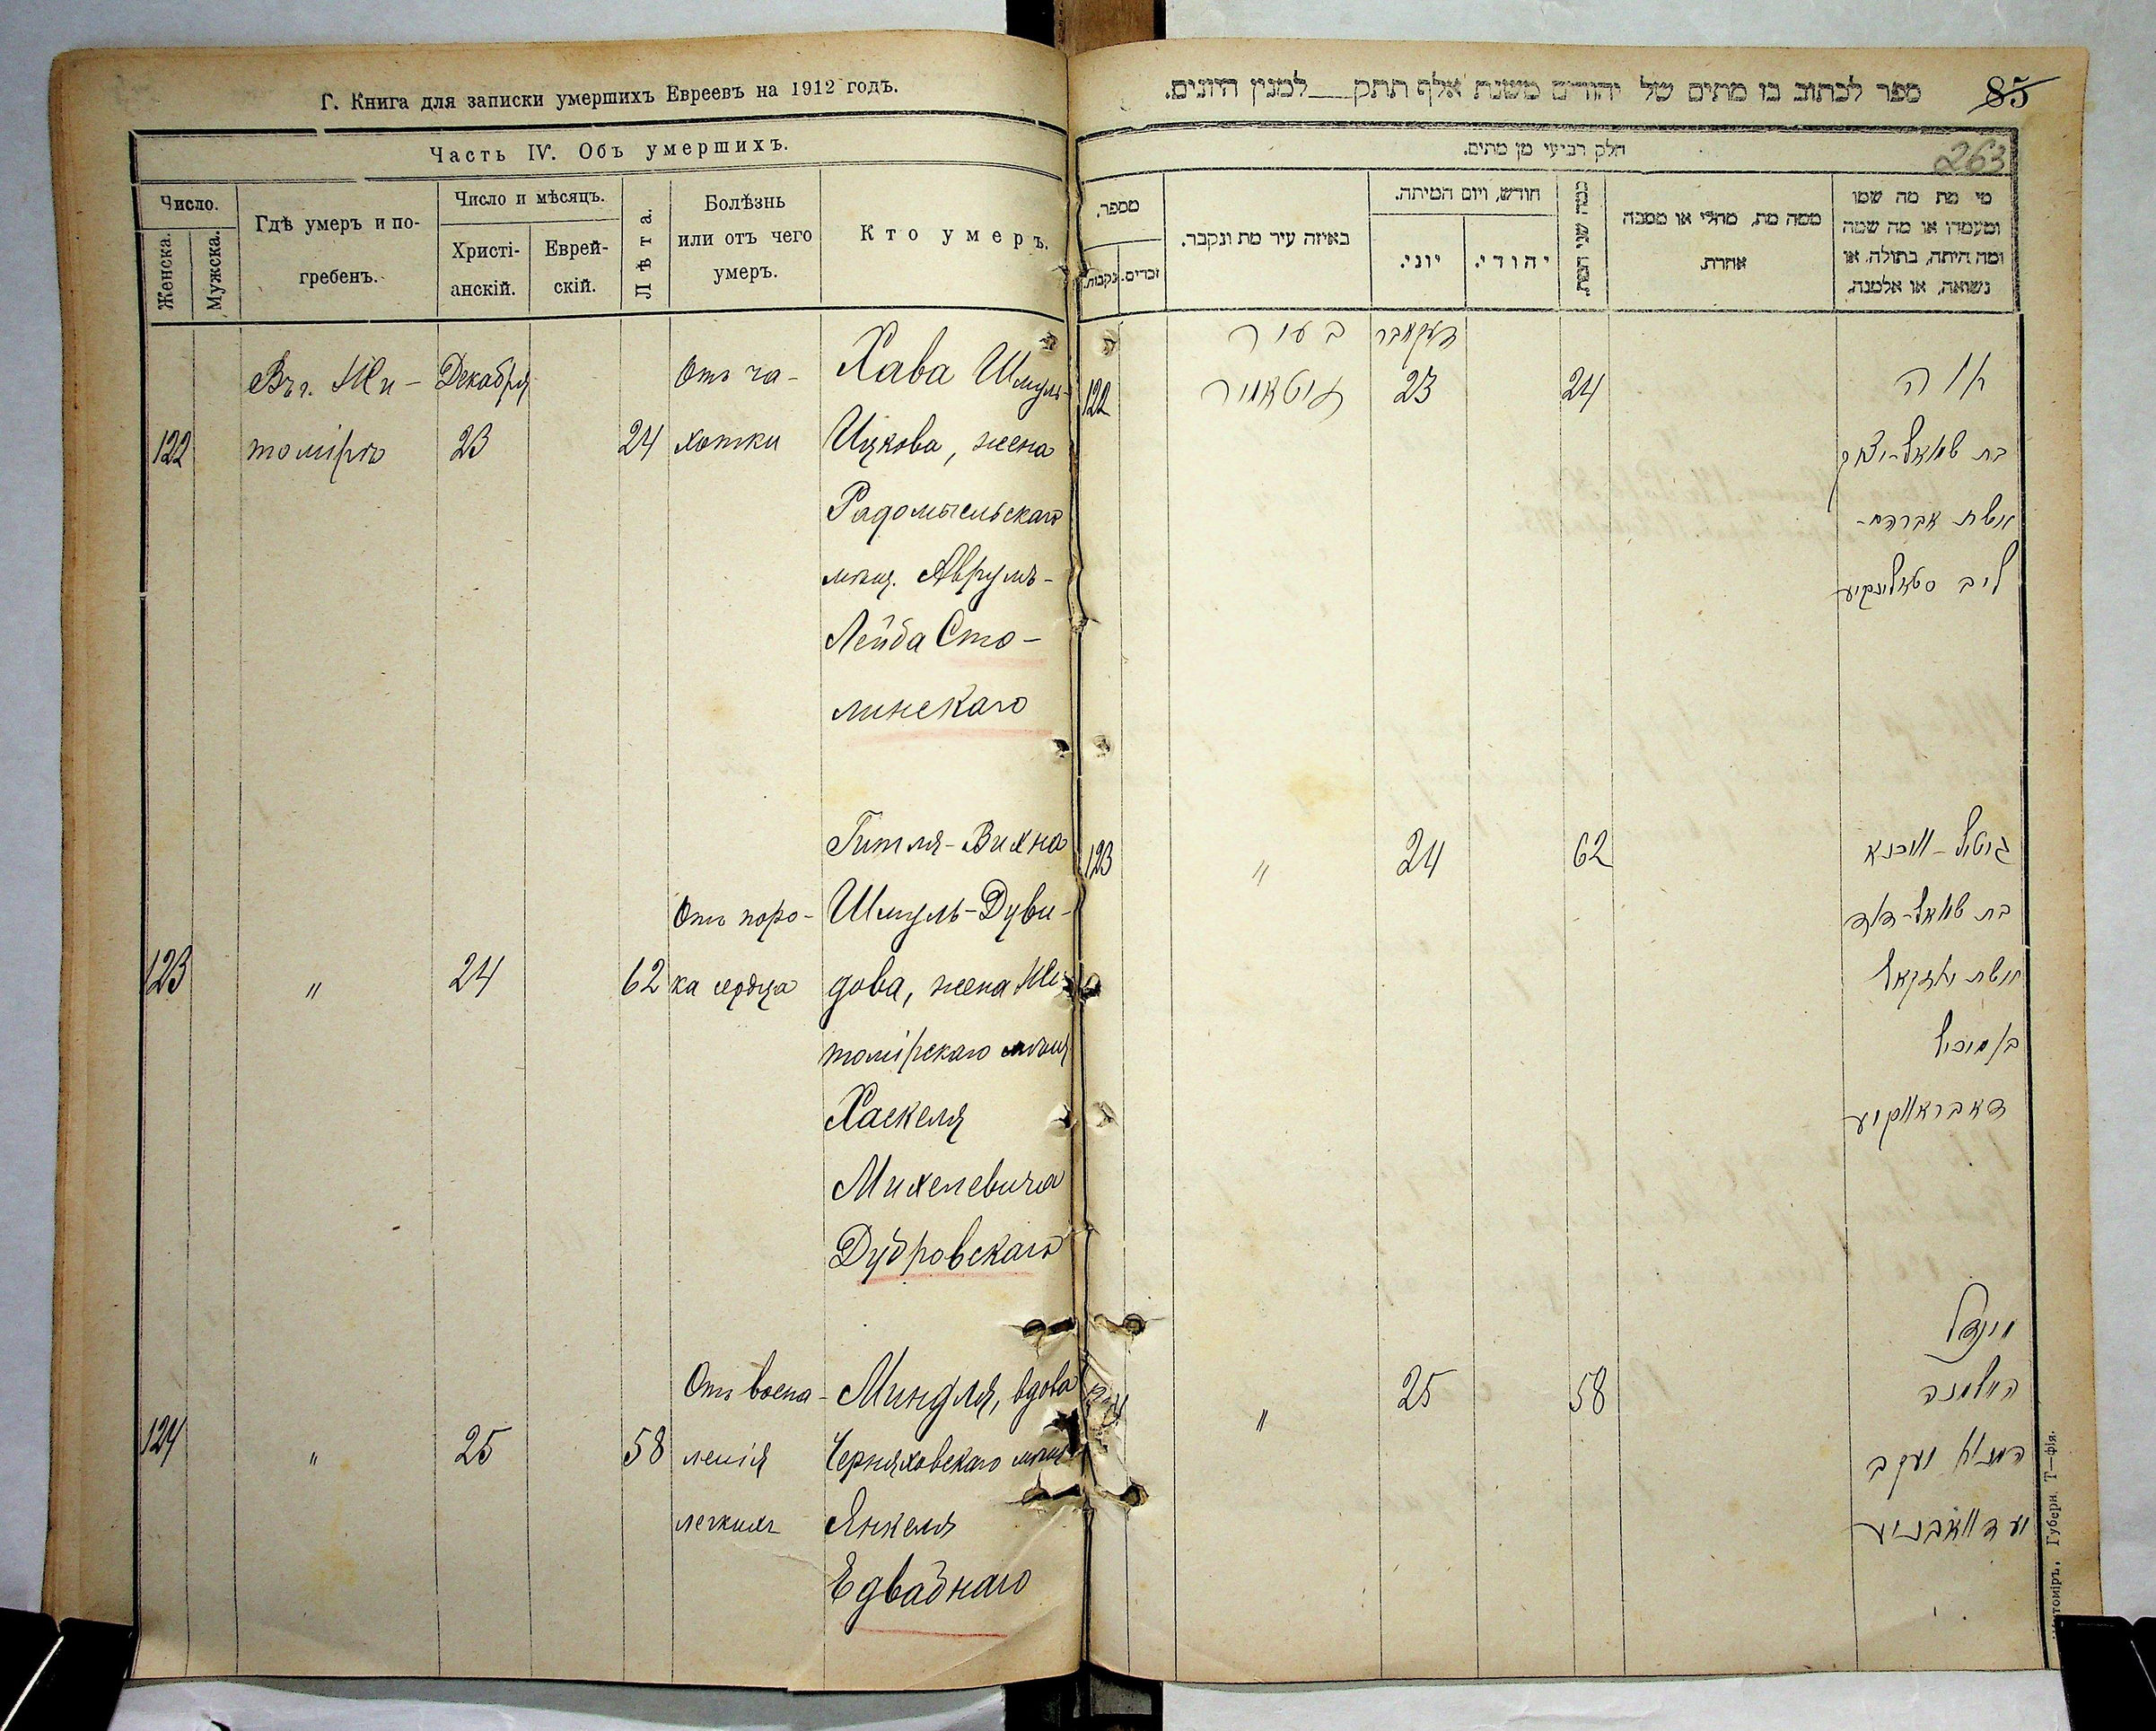 Г. Книга для записки умершихъ Евреевъ на 1912 годъ.
Часть IV. Объ умершихъ.
Число.
Женска.
Мужска.
Гдѣ умеръ и по-
гребенъ.
Число и мѣсяцъ.
Христі-
анскій.
Еврей-
скій.
Лѣта.
Болѣзнь
или отъ чего
умеръ.
Кто умеръ.
Въ г. Жи- Декабря Отъ ча- Хава Шмуль-
122 томірѣ 23 24 хотки Ицкова, жена
Радомысльскаго
мѣщ. Аврумъ-
Лейба Сто-
линскаго
Гитля-Вихна
Отъ поро- Шмуль-Дуви-
123 " 24 62 ка сердца дова, жена Жи-
томірскаго мѣщ
Хаскеля
Михелевича
Дубровскаго
Отъ воспа- Миндля, вдова
124 " 25 58 ленія Черняховскаго мѣщ
легкихъ Янкеля
Едвабнаго
ספר לכתוב בו מתים של יהודים משנת אלף תתק___למנין היונים.
85
263
חלק רביעי מן מתים.
מספר.
נקבות.
זכרים.
באיזה עיר מת ונקבר.
חודש, ויום המיתה.
יוני.
יהודי.
כמה שני המת.
ממה מת, מחלי או מסבה
אחרת.
מי מת מה שמו
ומעמדו או מה שמה
ומה היתה, בתולה, או
נשואה, או אלמנה.
בעיר דעקאבר
122 זיטאמיר 23 24 חוה
בת שמואל-יצחק
אשת אברהם-
ליב סטאלינסקיע
123 " 24 62 גיטל-וויכנא
בת שמואל-דוד
אשת יחזקאל
בן מיכל
דאבראווסקיע
מינדל
" 25 58 האלמנה
יעקב
יעדוואבניע
Житоміръ, Губерн. Т—фія.